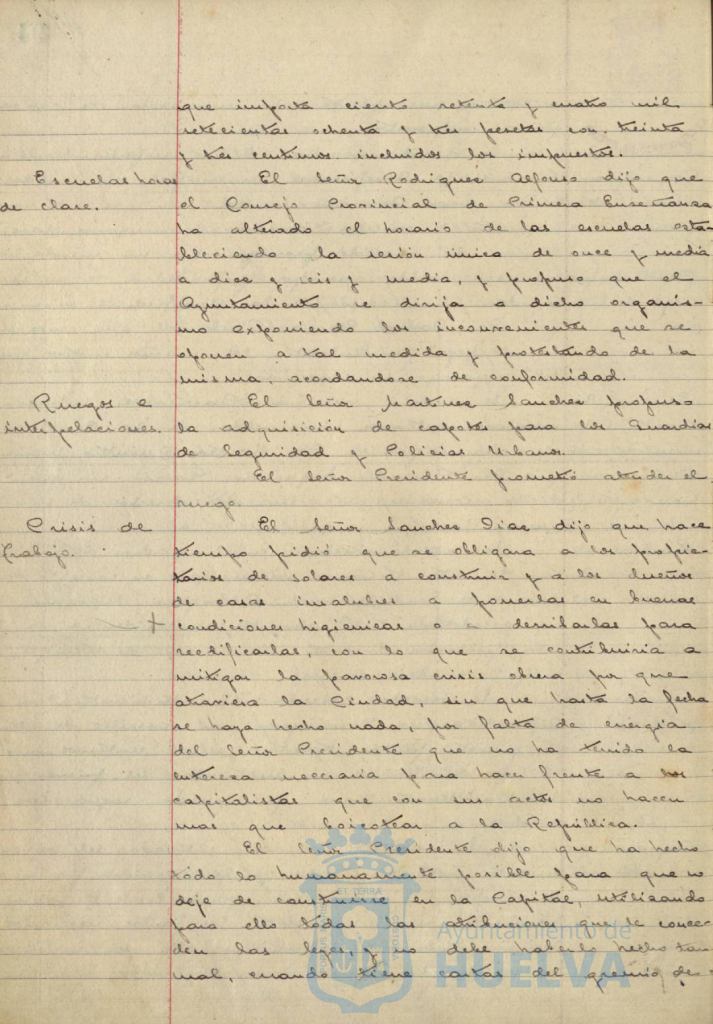 que importa ciento setenta y cuatro mil
setecientas ochenta y tres pesetas con treinta
y tres centimos incluidos los impuestos.
Escuelas horas
de clase.
El Señor Rodriguez Alfonso dijo que
el Consejo Provincial de Primera Enseñanza
ha alterado el horario de las escuelas esta-
bleciendo la sesión única de once y media
a diez y seis y media, y propuso que el
Ayuntamiento se dirija a dicho organis-
mo exponiendo los inconvenientes que se
oponen a tal medida y protestando de la
misma, acordandose de conformidad.
Ruegos e
interpelaciones.
El Señor Martinez Sanchez propuso
la adquisición de capotes para los Guardias
de Seguridad y Policias Urbanos.
El Señor Presidente prometió atender el
ruego.
Crisis de
trabajo.
El Señor Sanchez Diaz dijo que hace
tiempo pidió que se obligara a los propie-
tarios de solares a construir y a los dueños
de casas insalubres a ponerlas en buenas
condiciones higienicas o a derribarlas para
reedificarlas, con lo que se contribuiria a
mitigar la pavorosa crisis obrera por que
atraviesa la Ciudad, sin que hasta la fecha
se haya hecho nada, por falta de energia
del Señor Presidente que no ha tenido la
entereza necesaria para hacer frente a los
capitalistas que con sus actos no hacen
mas que boicotear a la República.
El Señor Presidente dijo que ha hecho
todo lo humanamente posible para que no
deje de construirse en la Capital, utilizando
para ello todas las atribuciones que le conce-
den las leyes, y no debe haberlo hecho tan
mal, cuando tiene cartas del gremio de
ET TERRÆ
Ayuntamiento de
HUELVA